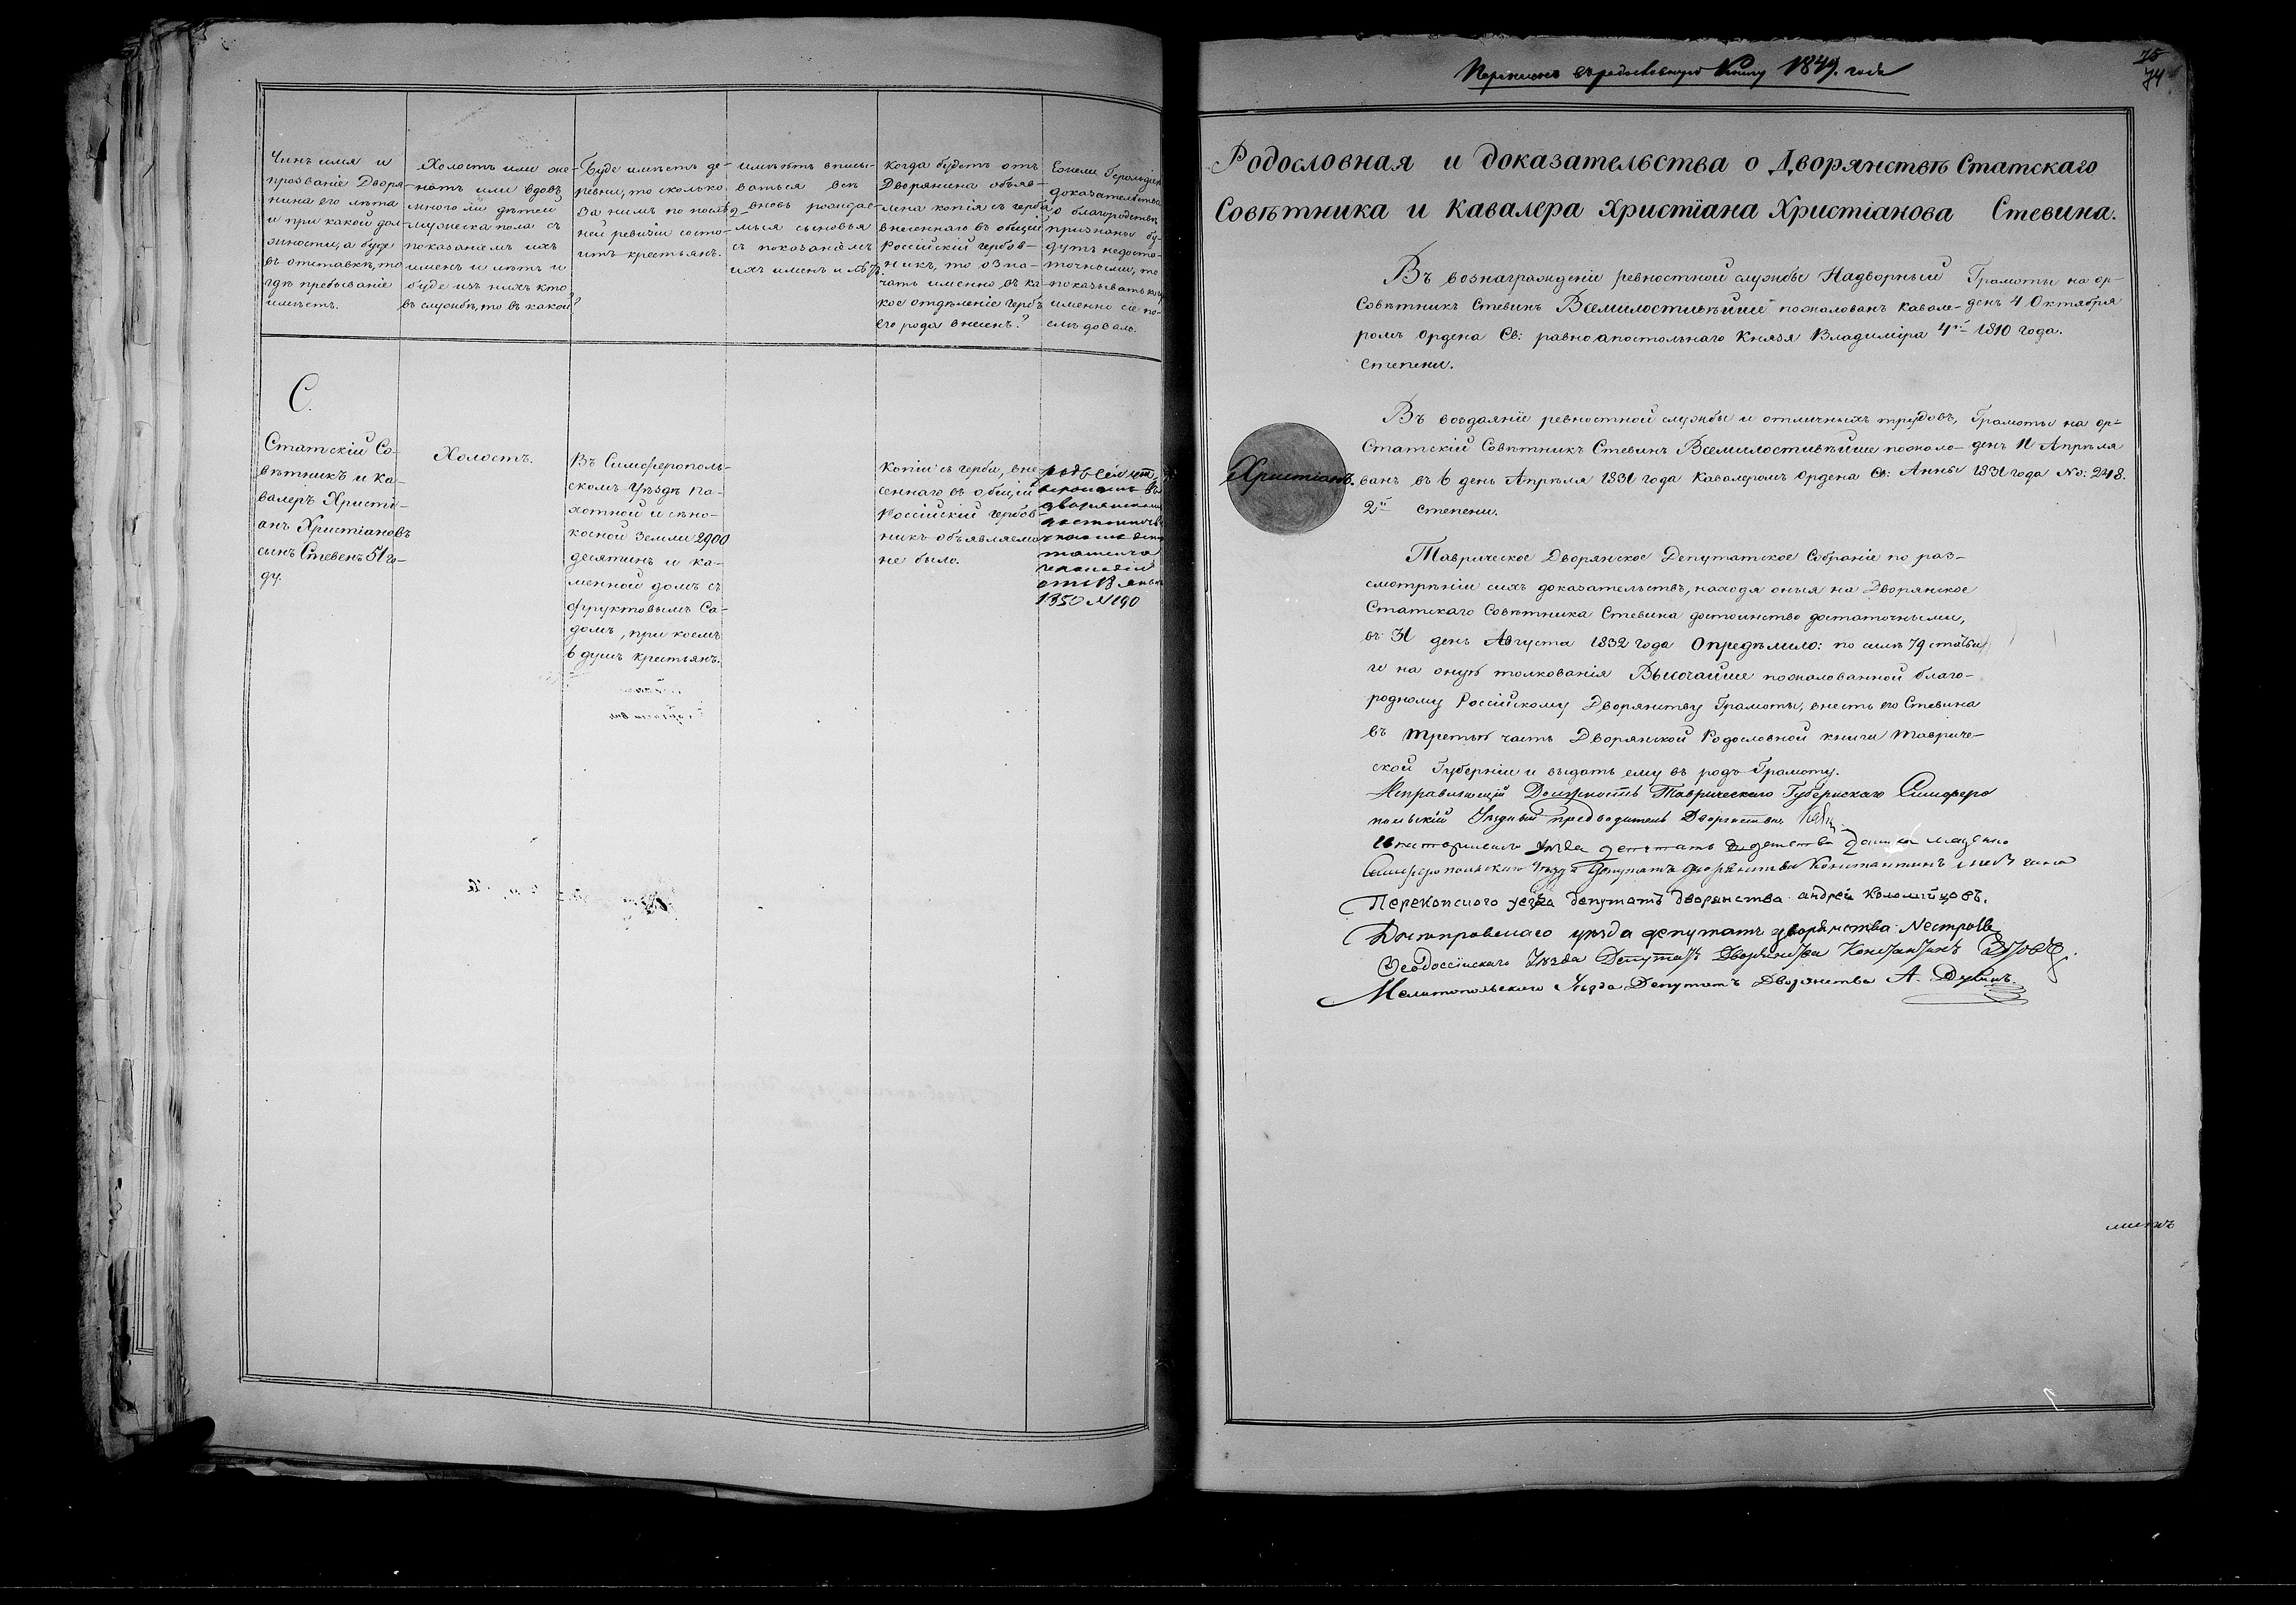 Чинъ имя и
прозваніе Дворя-
нина его лѣта
и при какой дол-
жности, а буде
въ отставкѣ, то
гдѣ пребываніе
имѣетъ.
Холостъ или же-
натъ или вдовъ
много ли дѣтей
мужеска пола съ
показаніемъ ихъ
именъ и лѣтъ и
буде изъ нихъ кто
въ службѣ, то въ какой?
Буде имѣетъ де-
ревни, то сколько
за нимъ по послѣ-
ней ревизіи состо-
итъ крестьянъ.
имѣютъ вписы-
ваться всѣ
вновь рождае-
мыя сыновья
съ показаніемъ
ихъ именъ и лѣтъ.
Когда будетъ отъ
Дворянина объяв-
лена копія съ герба
внесеннаго въ общій
Россійскій гербов-
никъ, то озна-
чать именно въ ка-
кое отдѣленіе гербъ
его рода внесенъ?
Ежели Герольдіею
доказательства
о благородствѣ
признаны бу-
дутъ недоста-
точными, то
показывать
именно сіе по-
С.
Статскій Со-
вѣтникъ и Ка-
валеръ Христі-
анъ Христіановъ
сынъ Стевенъ 51 го-
ду.
Холостъ.
Въ Симферополь-
скомъ Уѣздѣ па-
хотной и сѣно-
косной земли 2900
десятинъ и ка-
менной домъ съ
фруктовымъ Са-
домъ, при коемъ
6 душъ крестьянъ.
Копіи съ герба, вне
сеннаго въ общій
Россійскій гербов-
никъ объявляемо
не было.
родъ сей
дворянскомъ
1850 №190
75
74
въ родословную Книгу 1849. года
Родословная и доказательства о Дворянствѣ Статскаго
Совѣтника и Кавалера Христіана Христіанова Стевина.
Въ вознагражденіе ревностной службы Надворный
Совѣтникъ Стевинъ Всемилостивѣйше пожалованъ Кавале-
ромъ Ордена Св: равноапостольнаго Князя Владиміра 4й
степени.
Грамоты на ор-
денъ 4 Октября
1810 года.
Христіанъ.
Въ воздаяніе ревностной службы и отличныхъ трудовъ,
Статскій Совѣтникъ Стевинъ Всемилостивѣйше пожало-
ванъ въ 6 день Апрѣля 1831 года Кавалеромъ Ордена Св: Анны
2й степени.
Грамоты на ор-
денъ 11 Апрѣля
1831 года No: 248.
Таврическое Дворянское Депутатское Собраніе по раз-
смотрѣніи сихъ доказательствъ, находя оныя на Дворянское
Статскаго Совѣтника Стевина достоинство достаточными,
въ 31 день Августа 1832 года Опредѣлило: по силѣ 79 статьи
и на оную толкованія Высочайше пожалованной благо-
родному Россійскому Дворянству Грамоты, внесть его Стевина
въ третью часть Дворянской Родословной книги Тавриче-
ской Губерніи и выдать ему въ родъ Грамоту.
Исправляющій Должность Таврическаго Губернскаго Симферо
польскій Уѣздный предводитель Дворянства
уѣзда депутатъ
Симферопольскаго уѣзда Депутатъ дворянства Константинъ
Перекопского уезда депутатъ дворянства андрей Коломійцовъ.
Днѣпровскаго уѣзда депутатъ дворянства
Ѳеодосійскаго Уѣзда Депутатъ Дворянства Константинъ
Мелитопольскаго Уѣзда Депутатъ Дворянства А.